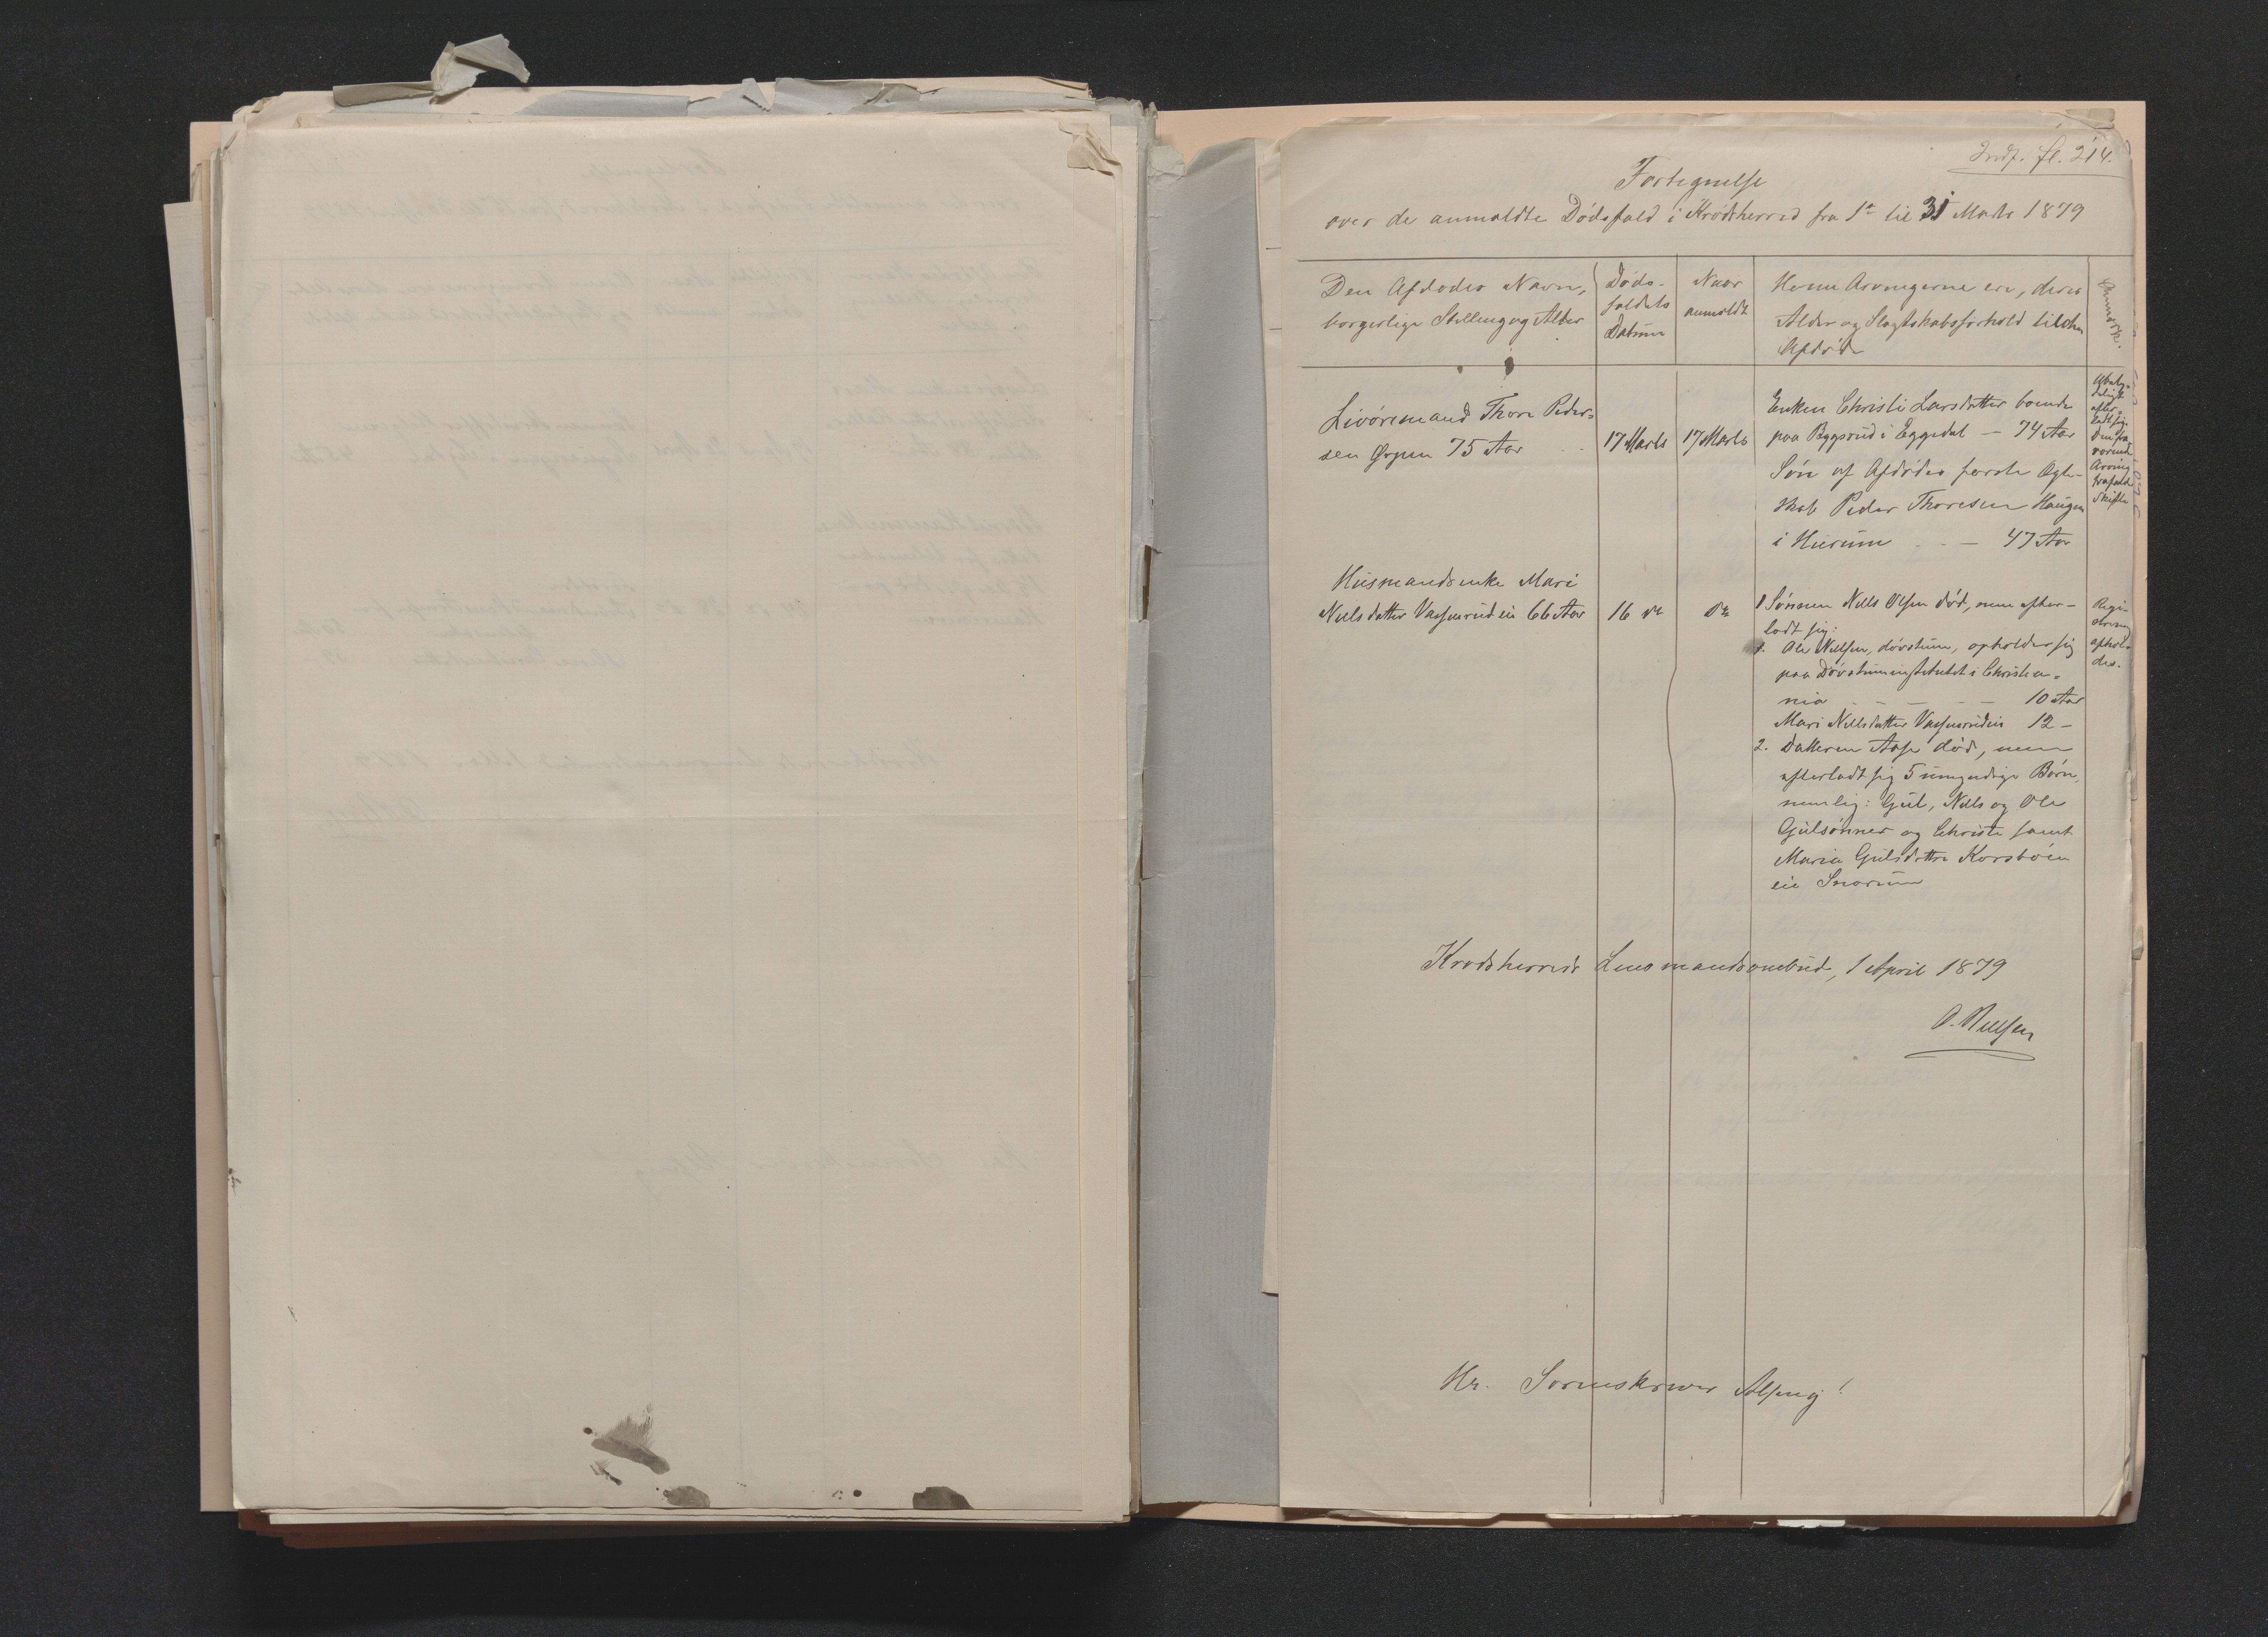 Indf. fl. 214.
Fortegnelse
over de anmeldte Dødsfald i Krødsherred fra 1ste til 31 Marts 1879
Den Afdødes Navn,
borgerlige Stilling og Alder
Døds-
faldets
Datum
Naar
anmeldt
Hvem Arvingerne ere, deres
Alder og Slægtskabsforhold til den
Afdøde
Anmærk.
Livøremand Thore Peder-
sen Ørgen 75 Aar
17 Marts
17 Marts
Enken Christi Larsdatter boende
paa Bygsrud i Eggedal — 74 Aar
Søn af Afdødes første Ægte-
skab Peder Thoresen Haugen
i Hiesum — 47 Aar
Ubety-
delight
efter-
ladt sig.
Den fra-
værende
Arving
Skifte
Husmandsenke Mari
Nielsdatter Vassenrudeie 66 Aar
16 do
do
1 Sønnen Nils Olsen død, men efter-
ladt sig:
1. Ole Nilssen, døvstum, opholder sig
paa Døvstumeinstitutet i Christia-
nia — 10 Aar
Mari Nilsdatter Vassenrudeie 12 —
2. Datteren Aase død, men
efterladt sig 5 umyndige Børn,
nemlig: Gul, Nils og Ole
Gulsønner og Christi samt
Maria Gulsdatter Korsbøen
eie Snarum
Regi-
strering
afhol-
des.
Krødsherreds Lensmandsombud, 1 April 1879
O. Nilssen
Hr. Sorenskriver